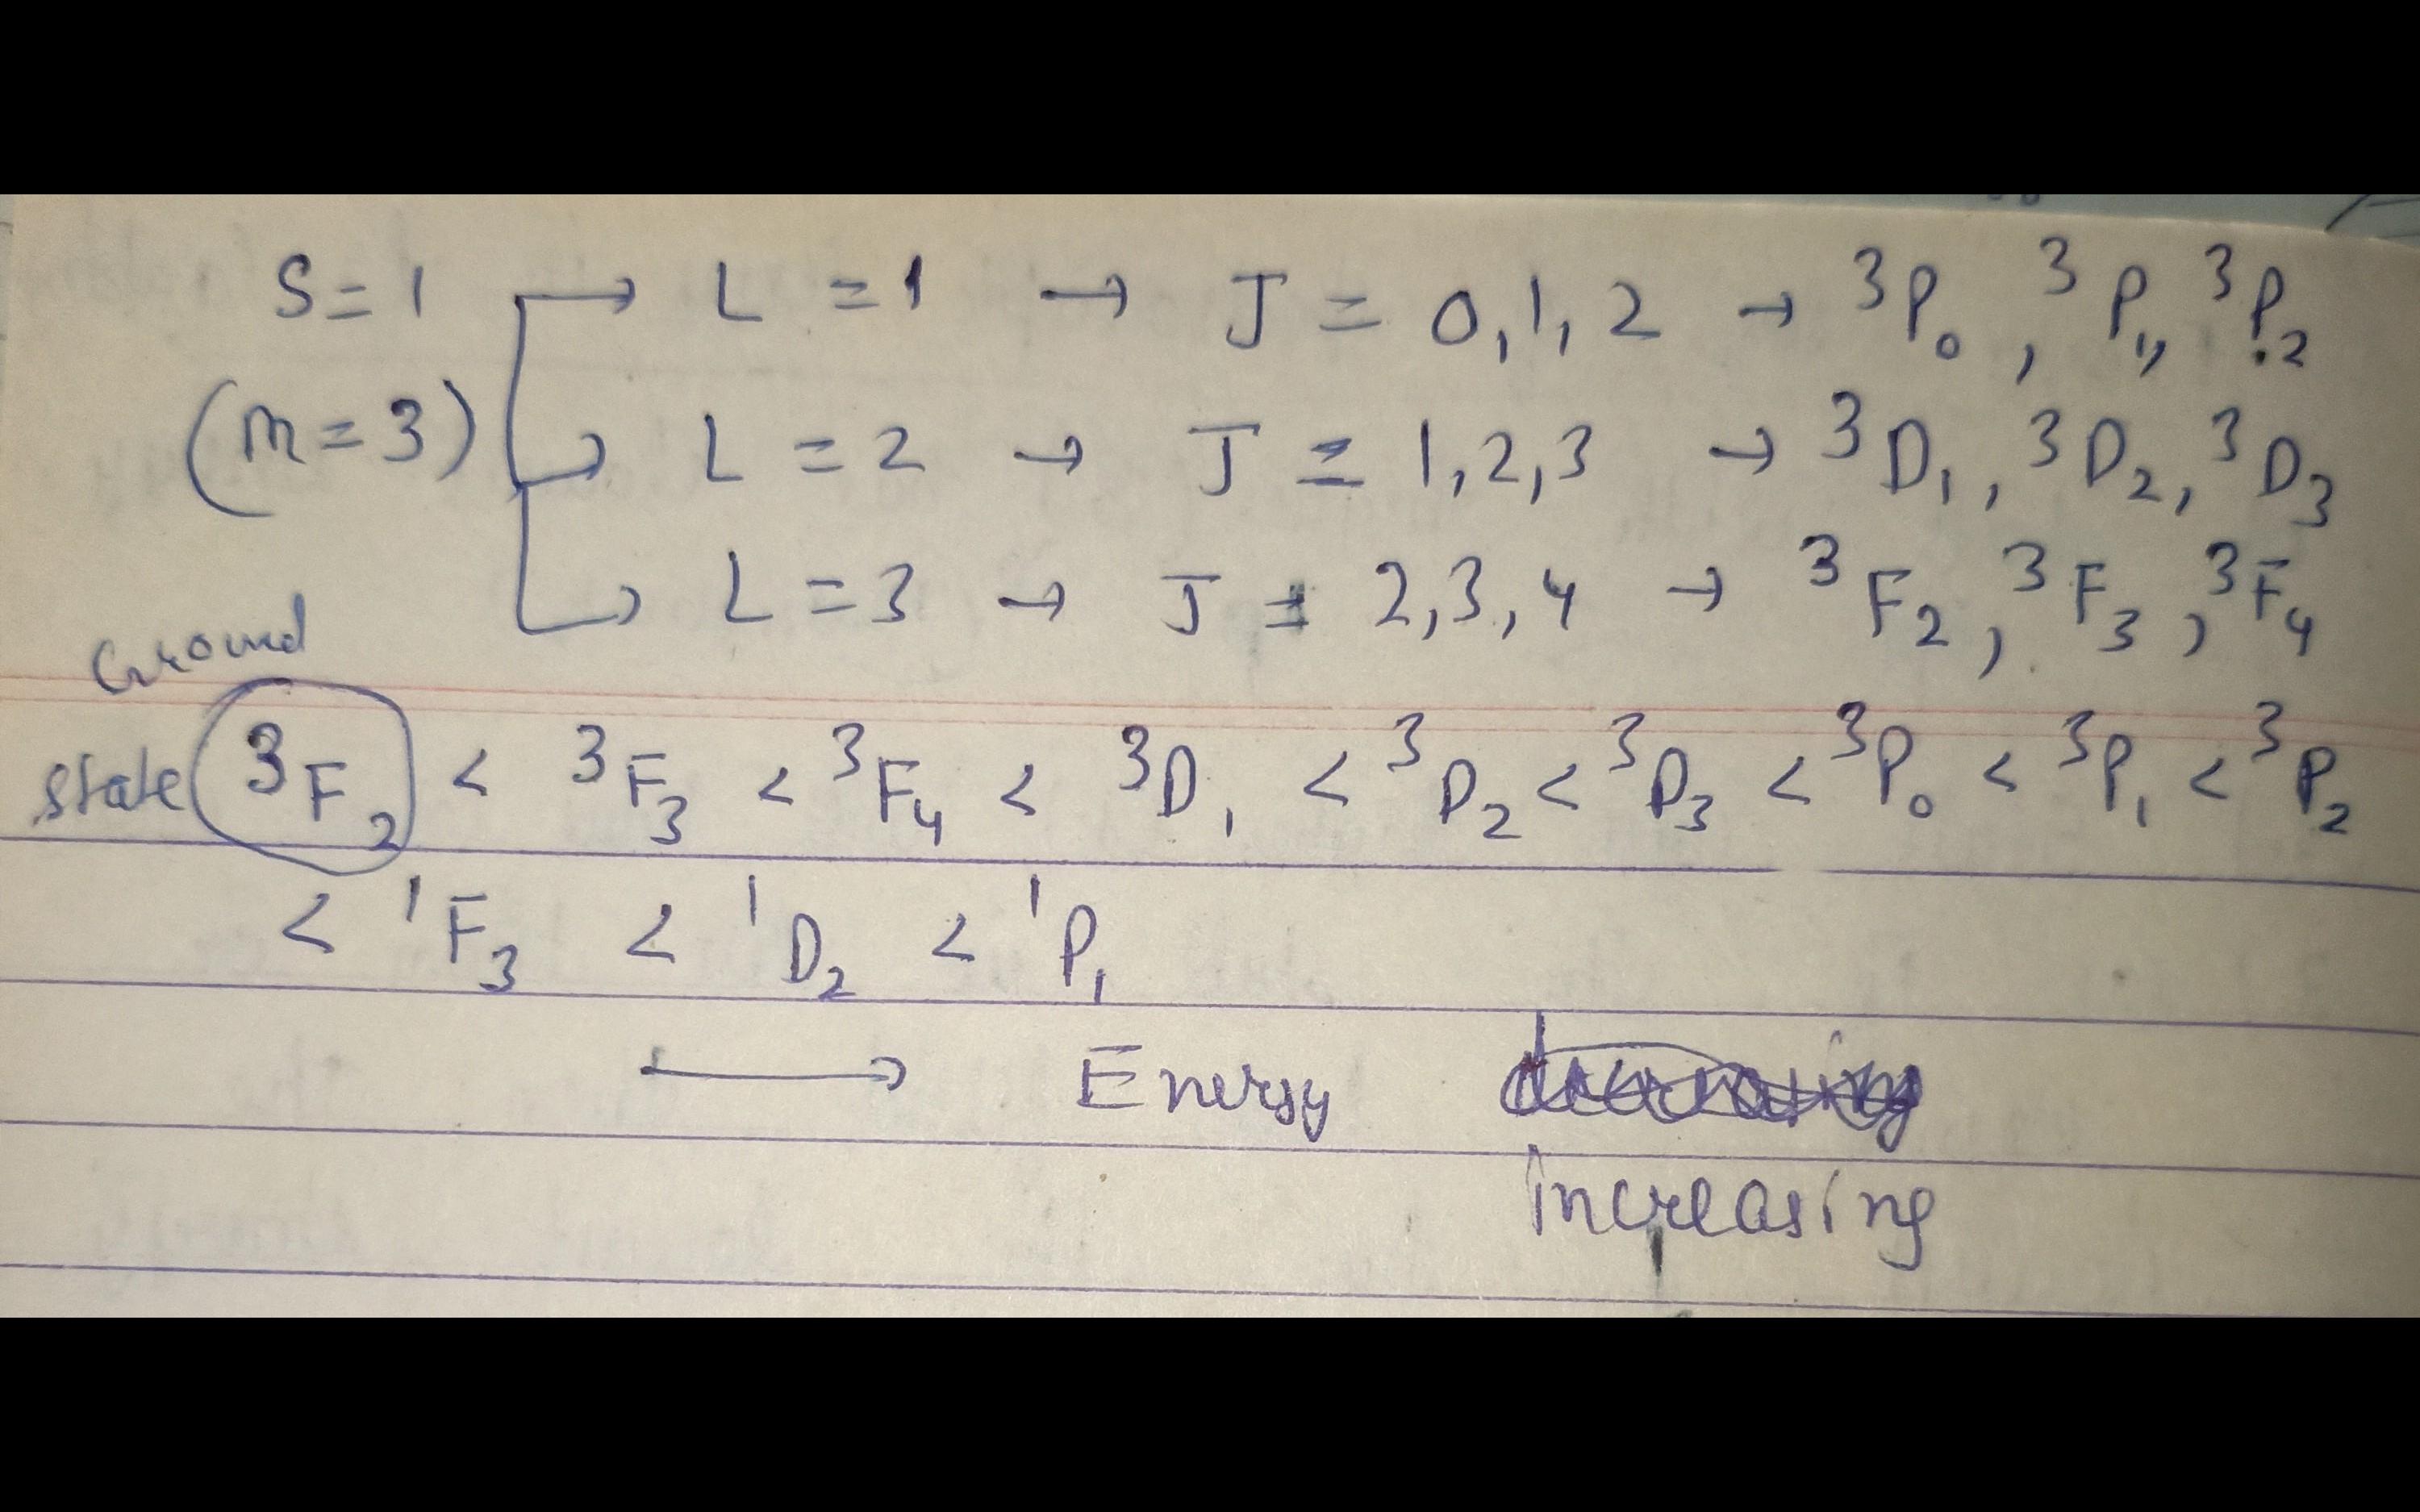 S = 1 → L = 1 → J = 0, 1, 2 → ³P₀, ³P₁, ³P₂
(m = 3) → L = 2 → J = 1, 2, 3 → ³D₁, ³D₂, ³D₃
→ L = 3 → J = 2, 3, 4 → ³F₂, ³F₃, ³F₄
Ground
state ³F₂ < ³F₃ < ³F₄ < ³D₁ < ³D₂ < ³D₃ < ³P₀ < ³P₁ < ³P₂
< ¹F₃ < ¹D₂ < ¹P₁
→ Energy
increasing